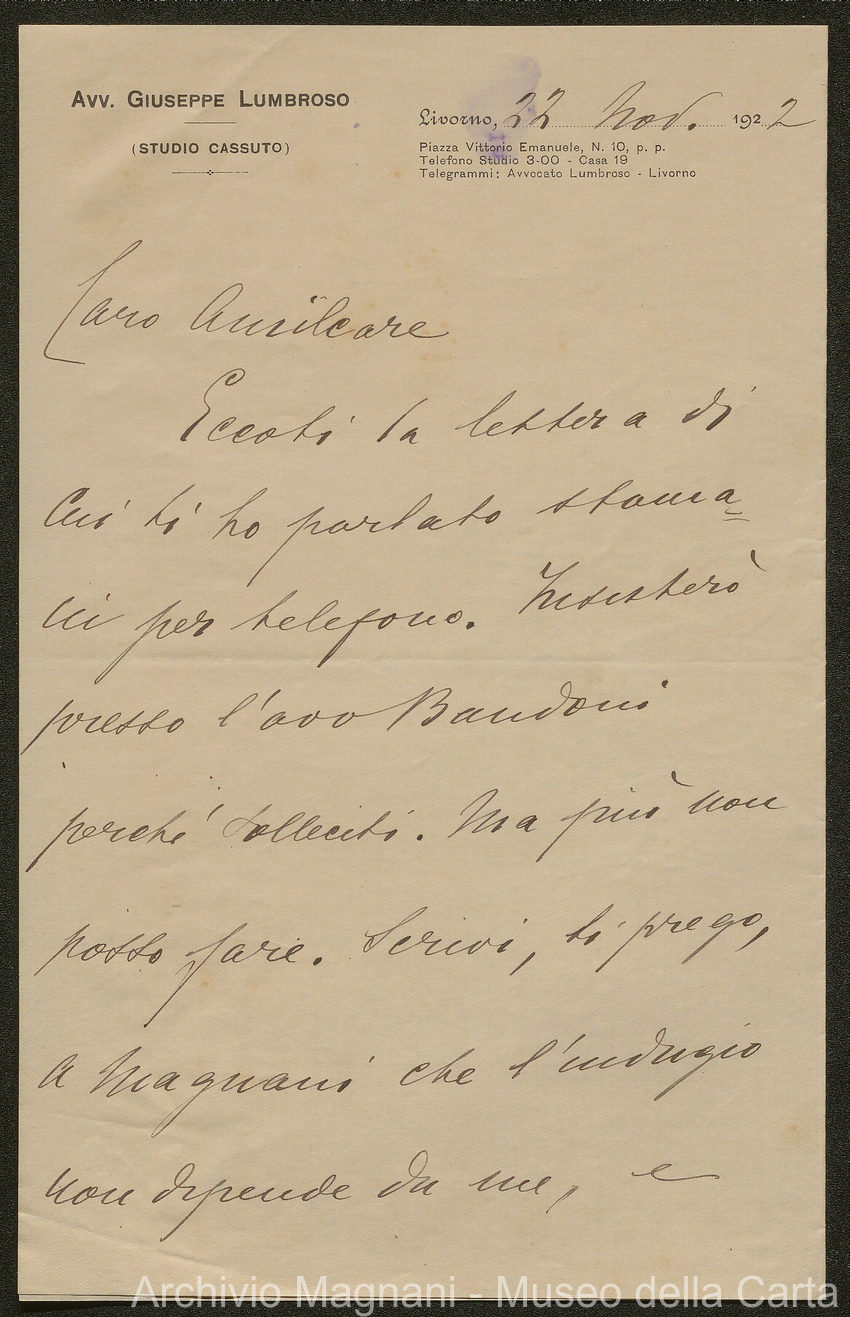 AVV. GIUSEPPE LUMBROSO
(STUDIO CASSUTO)
Livorno, 22 Nov. 1922
Piazza Vittorio Emanuele, N. 10, p. p.
Telefono Studio 3-00 - Casa 19
Telegrammi: Avvocato Lumbroso - Livorno
Caro Amilcare
Eccoti la lettera di
cui ti ho parlato stama=
ni per telefono. Insisterò
presso l'avv Bandoni
perché solleciti. Ma più non
posso fare. Scrivi, ti prego,
a Magnani che l'indugio
non dipende da me, e
Archivio Magnani - Museo della Carta